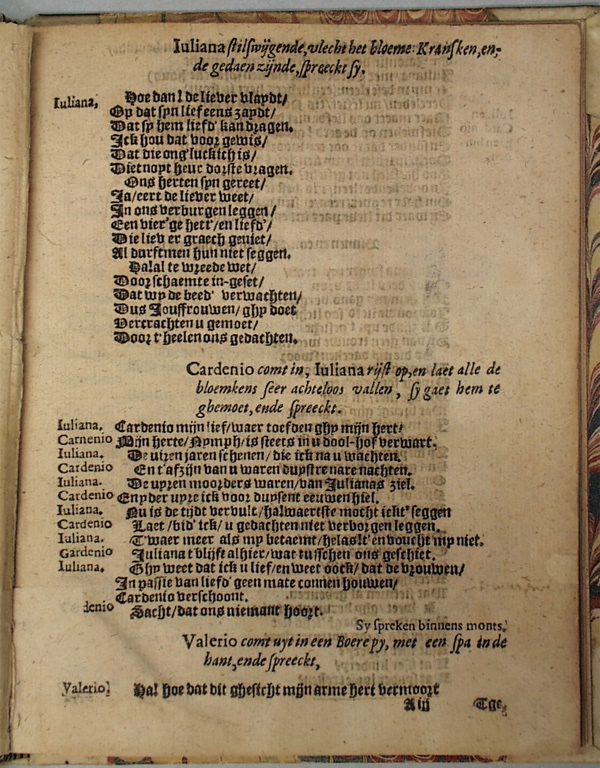 Iuliana stilswijgende, vlecht het bloeme: Kransken, en,
de gedaen zijnde, spreeckt sy.
Iuliana, Hoe dan! de liever vlaydt/
Op dat syn lief eens zaydt/
Dat sy hem liefd' kan dragen.
Ick hou dat voor gewis/
Dat die ong'luckich is/
Diet noyt heur dorste vragen.
Ons herten syn gereet/
Ja/eert de liever weet/
In ons verburgen leggen/
Een vier'ge hert'/en liefd'/
Die liev er graech geniet/
Al durftmen hun niet seggen.
Ha! al te wreede wet/
Door schaemte in-geset/
Dat wy de beed' verwachten/
Dus Jouffrouwen/ ghy doet
Vercrachten u gemoet/
Door t'heelen ons gedachten.
Cardenio comt in, Iuliana rijst op, en laet alle de
bloemkens seer achteloos vallen, sy gaet hem te
ghemoet, ende spreeckt.
Iuliana. Cardenio mijn lief/waer toefden ghy mijn hert/
Carnenio Mijn herte/Nymph/is steets in u dool-hof verwart.
Iuliana. De uiren jaren schenen/ die ick na u wachten.
Cardenio En t'afzijn van u waren duystre nare nachten.
Iuliana. De uyren moorders waren/van Julianas ziel.
Cardenio En yder uyre ick voor duysent eeuwen hiel.
Iuliana. Nu is de tijdt vervult/ halwaertste mocht ickt' seggen
Cardenio Laet/bid' ick/ u gedachten niet verborgen leggen.
Iuliana. T'waer meer als my betaemt/helaes!t'en voucht my niet.
Gardenio Juliana t blijft alhier/wat tusschen ons geschiet.
Iuliana. Ghy weet dat ick u lief/en weet oock/ dat de vrouwen/
In passie van liefd' geen mate connen houwen/
Cardenio verschoont.
denio Sacht/dat ons niemant hoort.
Sy spreken binnens monts.
Valerio comt uyt in een Boere py, met een spa in de
hant, ende spreeckt,
Valerio! Ha! hoe dat dit ghesicht mijn arme hert vermoort
A iij Tge,